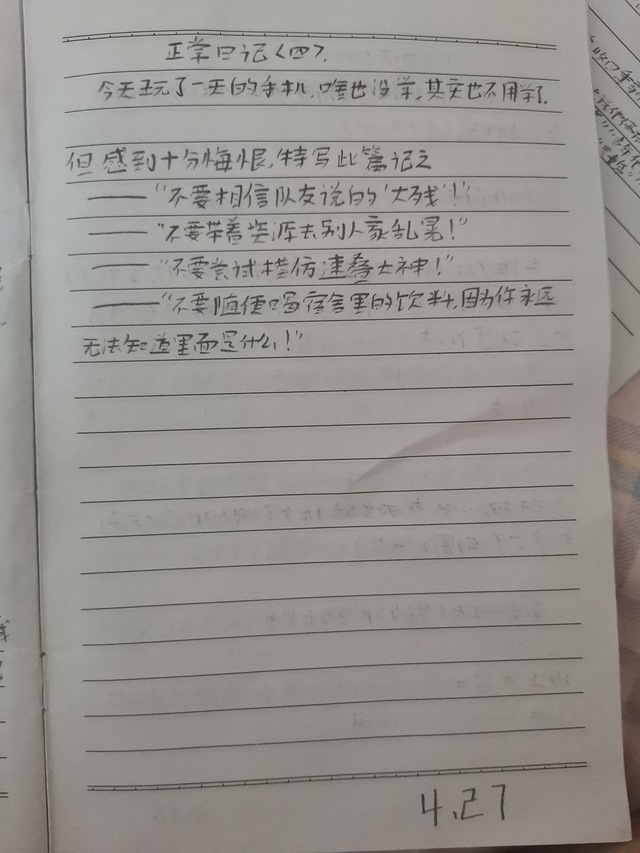 正常日记〈四〉.
今天玩了一天的手机,啥也没学,其实也不用学了.
但感到十分悔恨,特写此篇记之
——"不要相信队友说的'大残'!"
——"不要带着资源去别人家乱晃!"
——"不要尝试模仿速叠大神!"
——"不要随便喝宿舍里的饮料,因为你永远
无法知道里面是什么!"
4.27